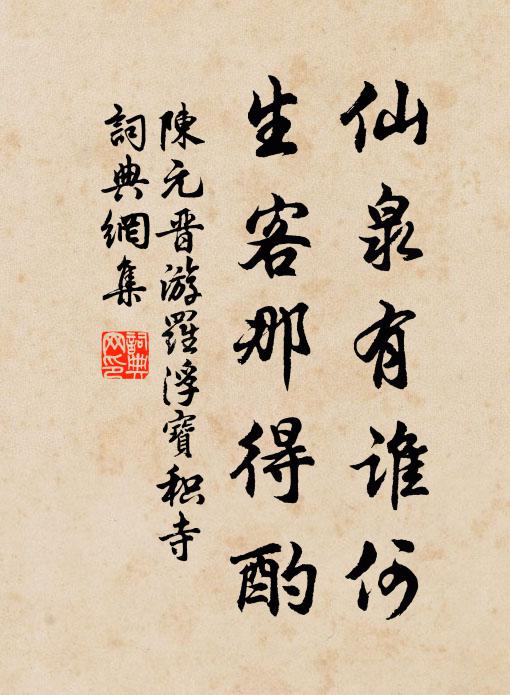 仙泉有誰何
生客那得酌
陳元晋游羅浮寶积寺
詞典網集
詞典網印